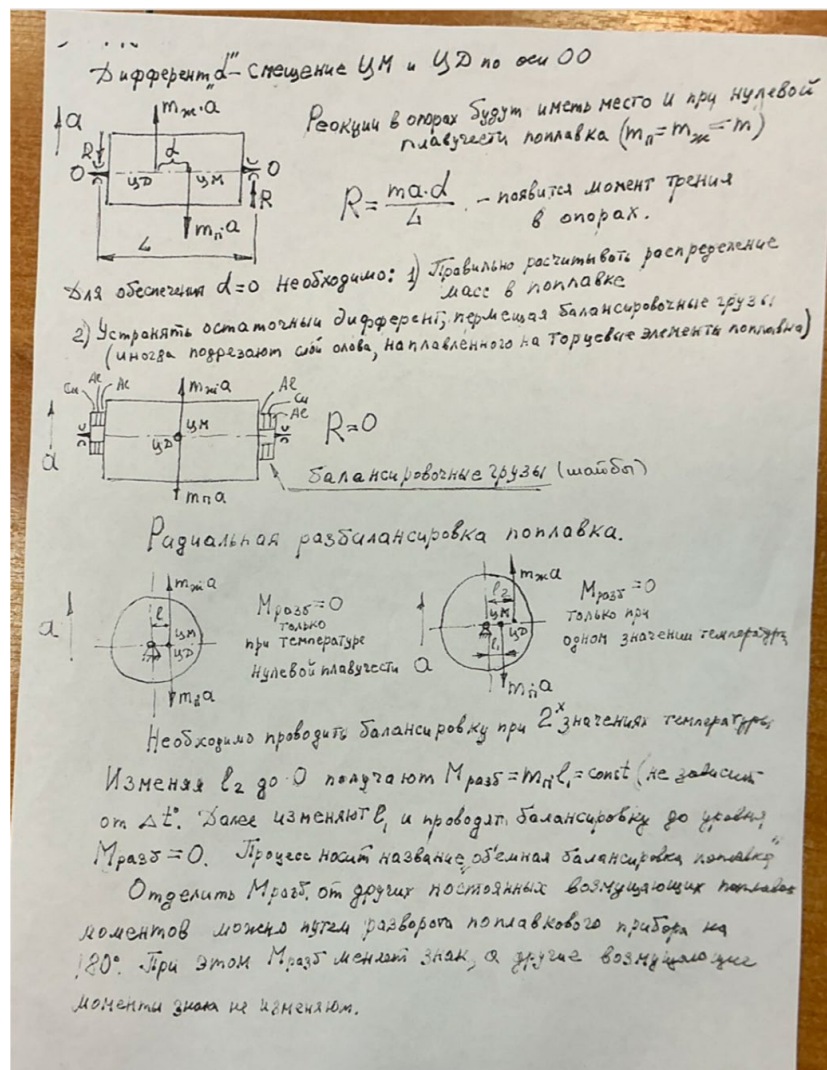 Дифферент „d" - смещение ЦМ и ЦД по оси ОО
a
mж·a
d
R
O
ЦД
ЦМ
O
R
mпa
L
Реокции в опорах будут иметь место и при нулевой
плавучести поплавка (mп=mж=m)
R = ma·d / L - появится момент трения
в опорах.
Для обеспечения d=0 необходимо: 1) Правильно расчитывать распределение
масс в поплавке
2) Устранять остаточный дифферент, пермещая балансировочные грузы
(иногда подрезают слой олова, наплавленного на торцевые элементы поплавка)
Cu Al Al
mжa
Al
Cu
Al
a
ЦМ
ЦД
R=0
mпa
балансировочные грузы (шайбы)
Радиальная разбалансировка поплавка.
a
mжa
l
ЦМ
ЦД
mпa
Mразб=0
только
при температуре
нулевой плавучести
a
mжa
l2
ЦМ
ЦД
l1
mпa
Mразб=0
только при
одном значении температуры
Необходимо проводить балансировку при 2х значениях температуры
Изменяя l2 до 0 получают Mразб=mпl1=const (не зависит
от Δt°. Далее изменяют l1 и проводят балансировку до уровня
Mразб=0. Процесс носит название „объемная балансировка поплавка"
Отделить Mразб. от других постоянных возмущающих поплавок
моментов можно путем разворота поплавкового прибора на
180°. При этом Mразб меняет знак, а другие возмущающие
моменты знака не изменяют.